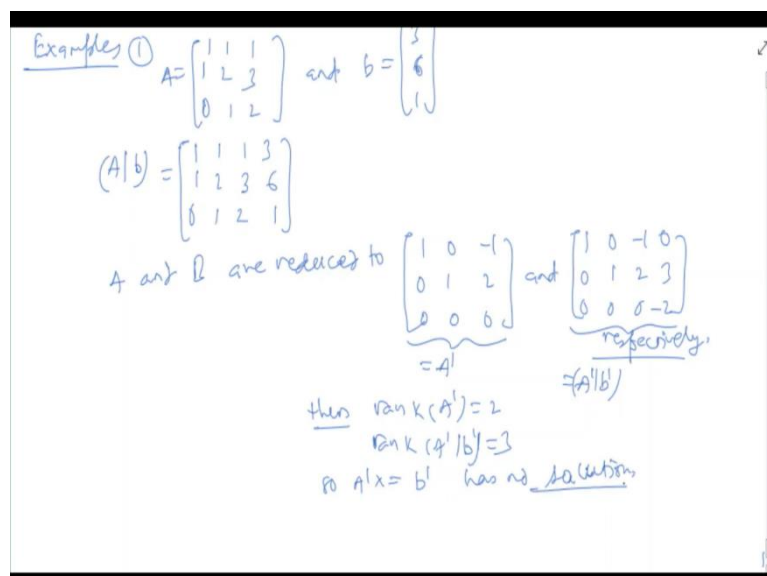 Examples ① A = [1 1 1; 1 2 3; 0 1 2] and b = [3; 6; 1]
(A|b) = [1 1 1 3; 1 2 3 6; 0 1 2 1]
A and B are reduced to [1 0 -1; 0 1 2; 0 0 0] and [1 0 -1 0; 0 1 2 3; 0 0 0 -2]
respectively.
= A' =(A'|b')
then rank(A') = 2
rank(A'|b') = 3
so A'x = b' has no solution